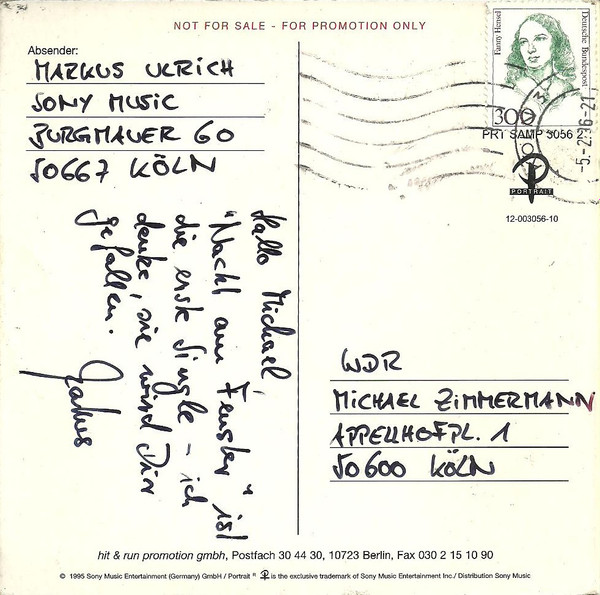 NOT FOR SALE - FOR PROMOTION ONLY
Absender:
MARKUS ULRICH
SONY MUSIC
BURGMAUER 60
50667 KÖLN
Fanny Hensel
Deutsche Bundespost
300
PRT SAMP 3056 2
-5.-2.96-21
PORTRAIT
12-003056-10
Hallo Michael,
"Nacht am Fenster" ist
die erste Single – ich
denke, sie wird Dir
gefallen.
Markus
WDR
MICHAEL ZIMMERMANN
APPELLHOFPL. 1
50600 KÖLN
hit & run promotion gmbh, Postfach 30 44 30, 10723 Berlin, Fax 030 2 15 10 90
© 1995 Sony Music Entertainment (Germany) GmbH / Portrait ® is the exclusive trademark of Sony Music Entertainment Inc./ Distribution Sony Music